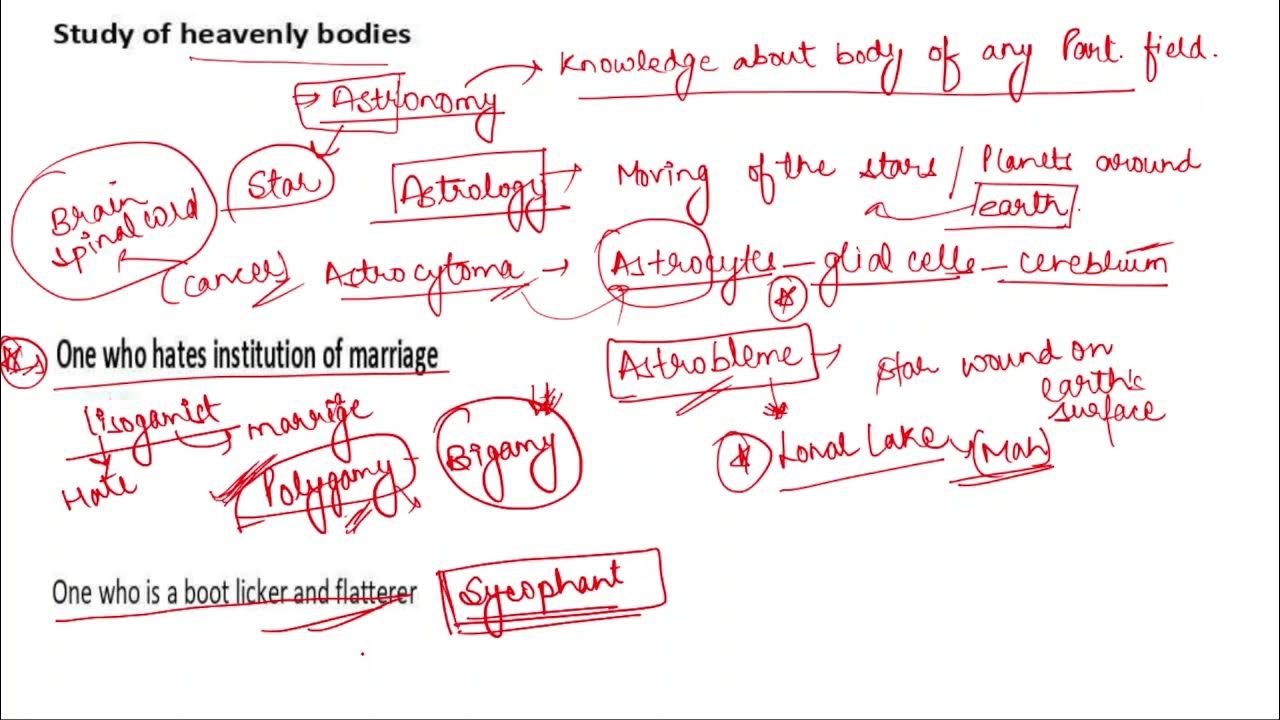 Study of heavenly bodies
Astronomy
Knowledge about body of any Part. field.
Star
Astrology
Moving of the stars / Planets around
earth.
Brain
spinal cord
(cancer)
Astrocytoma → Astrocytes - glial cells - cerebrium
One who hates institution of marriage
Astrobleme →
star wound on
earth's
surface
marrige
Hate
Polygamy
Bigamy
Lonal Lake
(Mah)
One who is a boot licker and flatterer
Sycophant